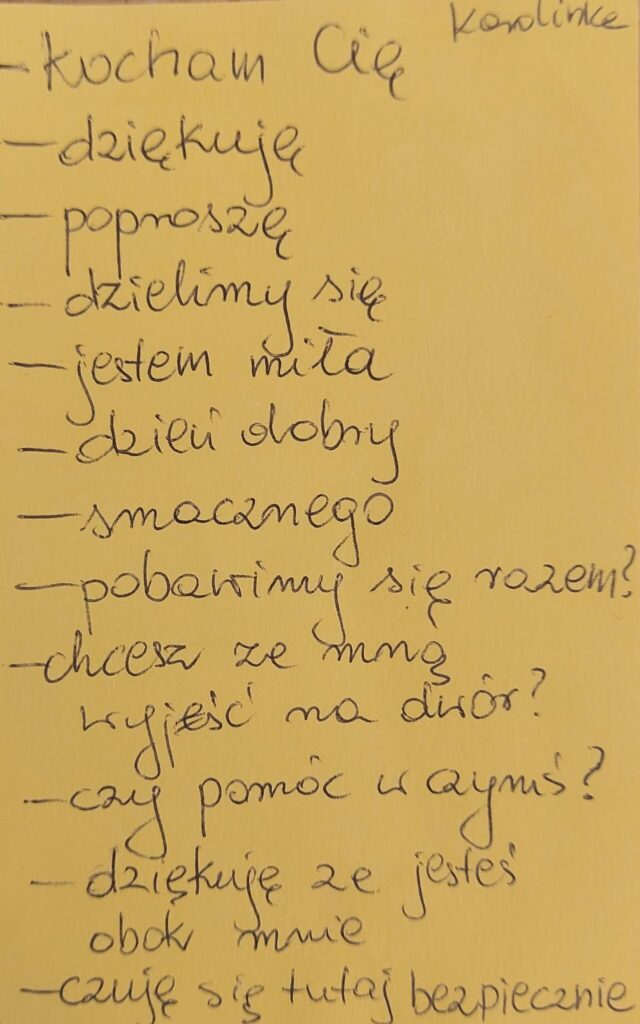 Karolinka
- kocham Cię
- dziękuję
- poproszę
- dzielimy się
- jestem miła
- dzień dobry
- smacznego
- pobawimy się razem?
- chcesz ze mną
wyjść na dwór?
- czy pomóc w czymś?
- dziękuję ze jesteś
obok mnie
- czuję się tutaj bezpiecznie